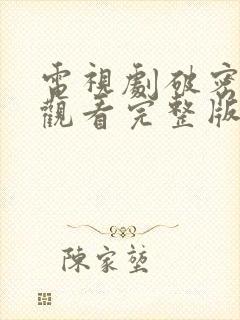 電視劇破密
觀看完整版
陳家堃